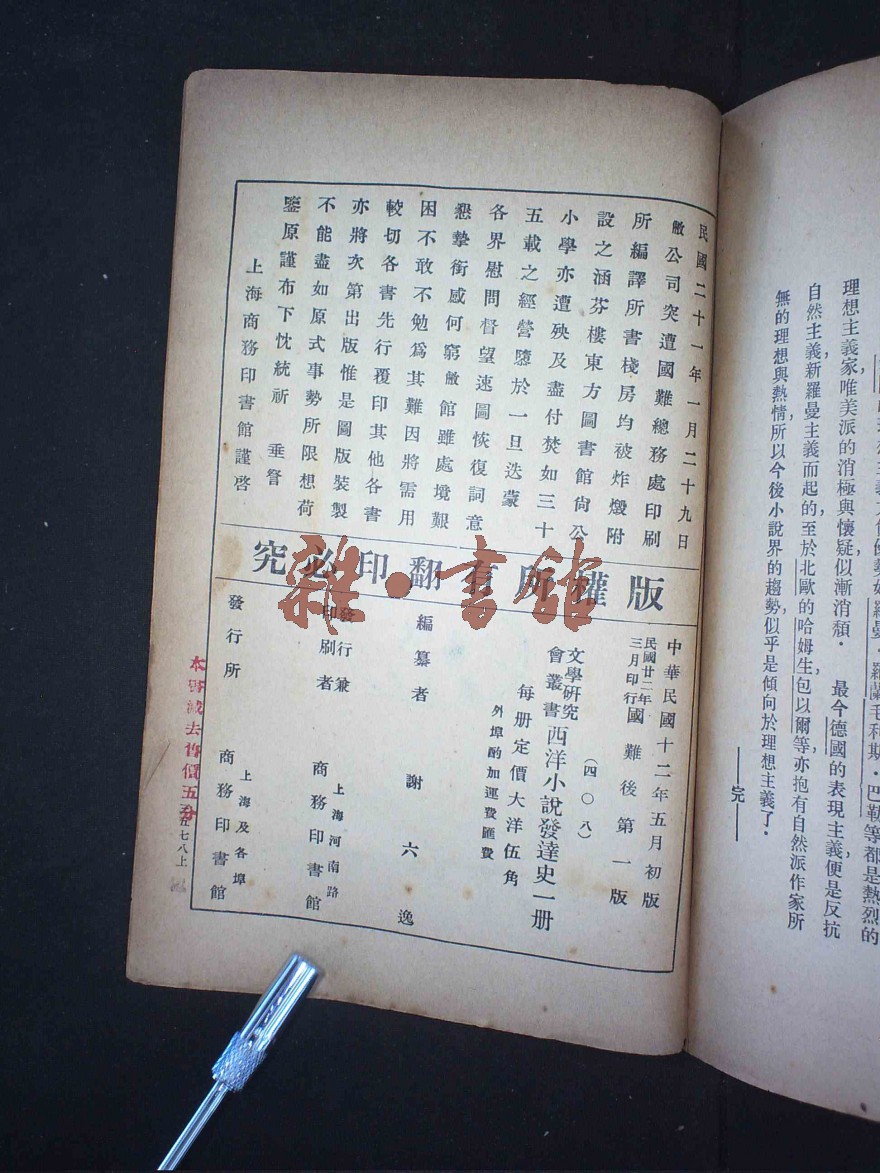 理想主義家唯美派的消極與懷疑似漸消頹．　最今德國的表現主義，便是反抗
自然主義，新羅曼主義而起的，至於北歐的哈姆生，包以爾等亦抱有自然派作家所
無的理想與熱情，所以今後小說界的趨勢，似乎是傾向於理想主義了．
——完——
民國二十一年一月二十九日
敝公司突遭國難總務處印刷
所編譯所書棧房均被炸燬附
設之涵芬樓東方圖書館尙公
小學亦遭殃及盡付焚如三十
五載之經營隳於一旦迭蒙
各界慰問督望速圖恢復詞意
懇摯銜感何窮敝館雖處境艱
困不敢不勉爲其難因將需用
較切各書先行覆印其他各書
亦將次第出版惟是圖版裝製
不能盡如原式事勢所限想荷
鑒原謹布下忱統祈　垂詧
上海商務印書館謹啓
版權所有翻印必究
中華民國十二年五月初版
民國廿二年三月印行國難後第一版
（四〇八）
文學研究會叢書西洋小說發達史一册
每册定價大洋伍角
外埠酌加運費匯費
編纂者　謝六逸
發行兼印刷者　上海河南路商務印書館
發行所　上海及各埠商務印書館
本書減去售價五分
五七八上
雜·書館